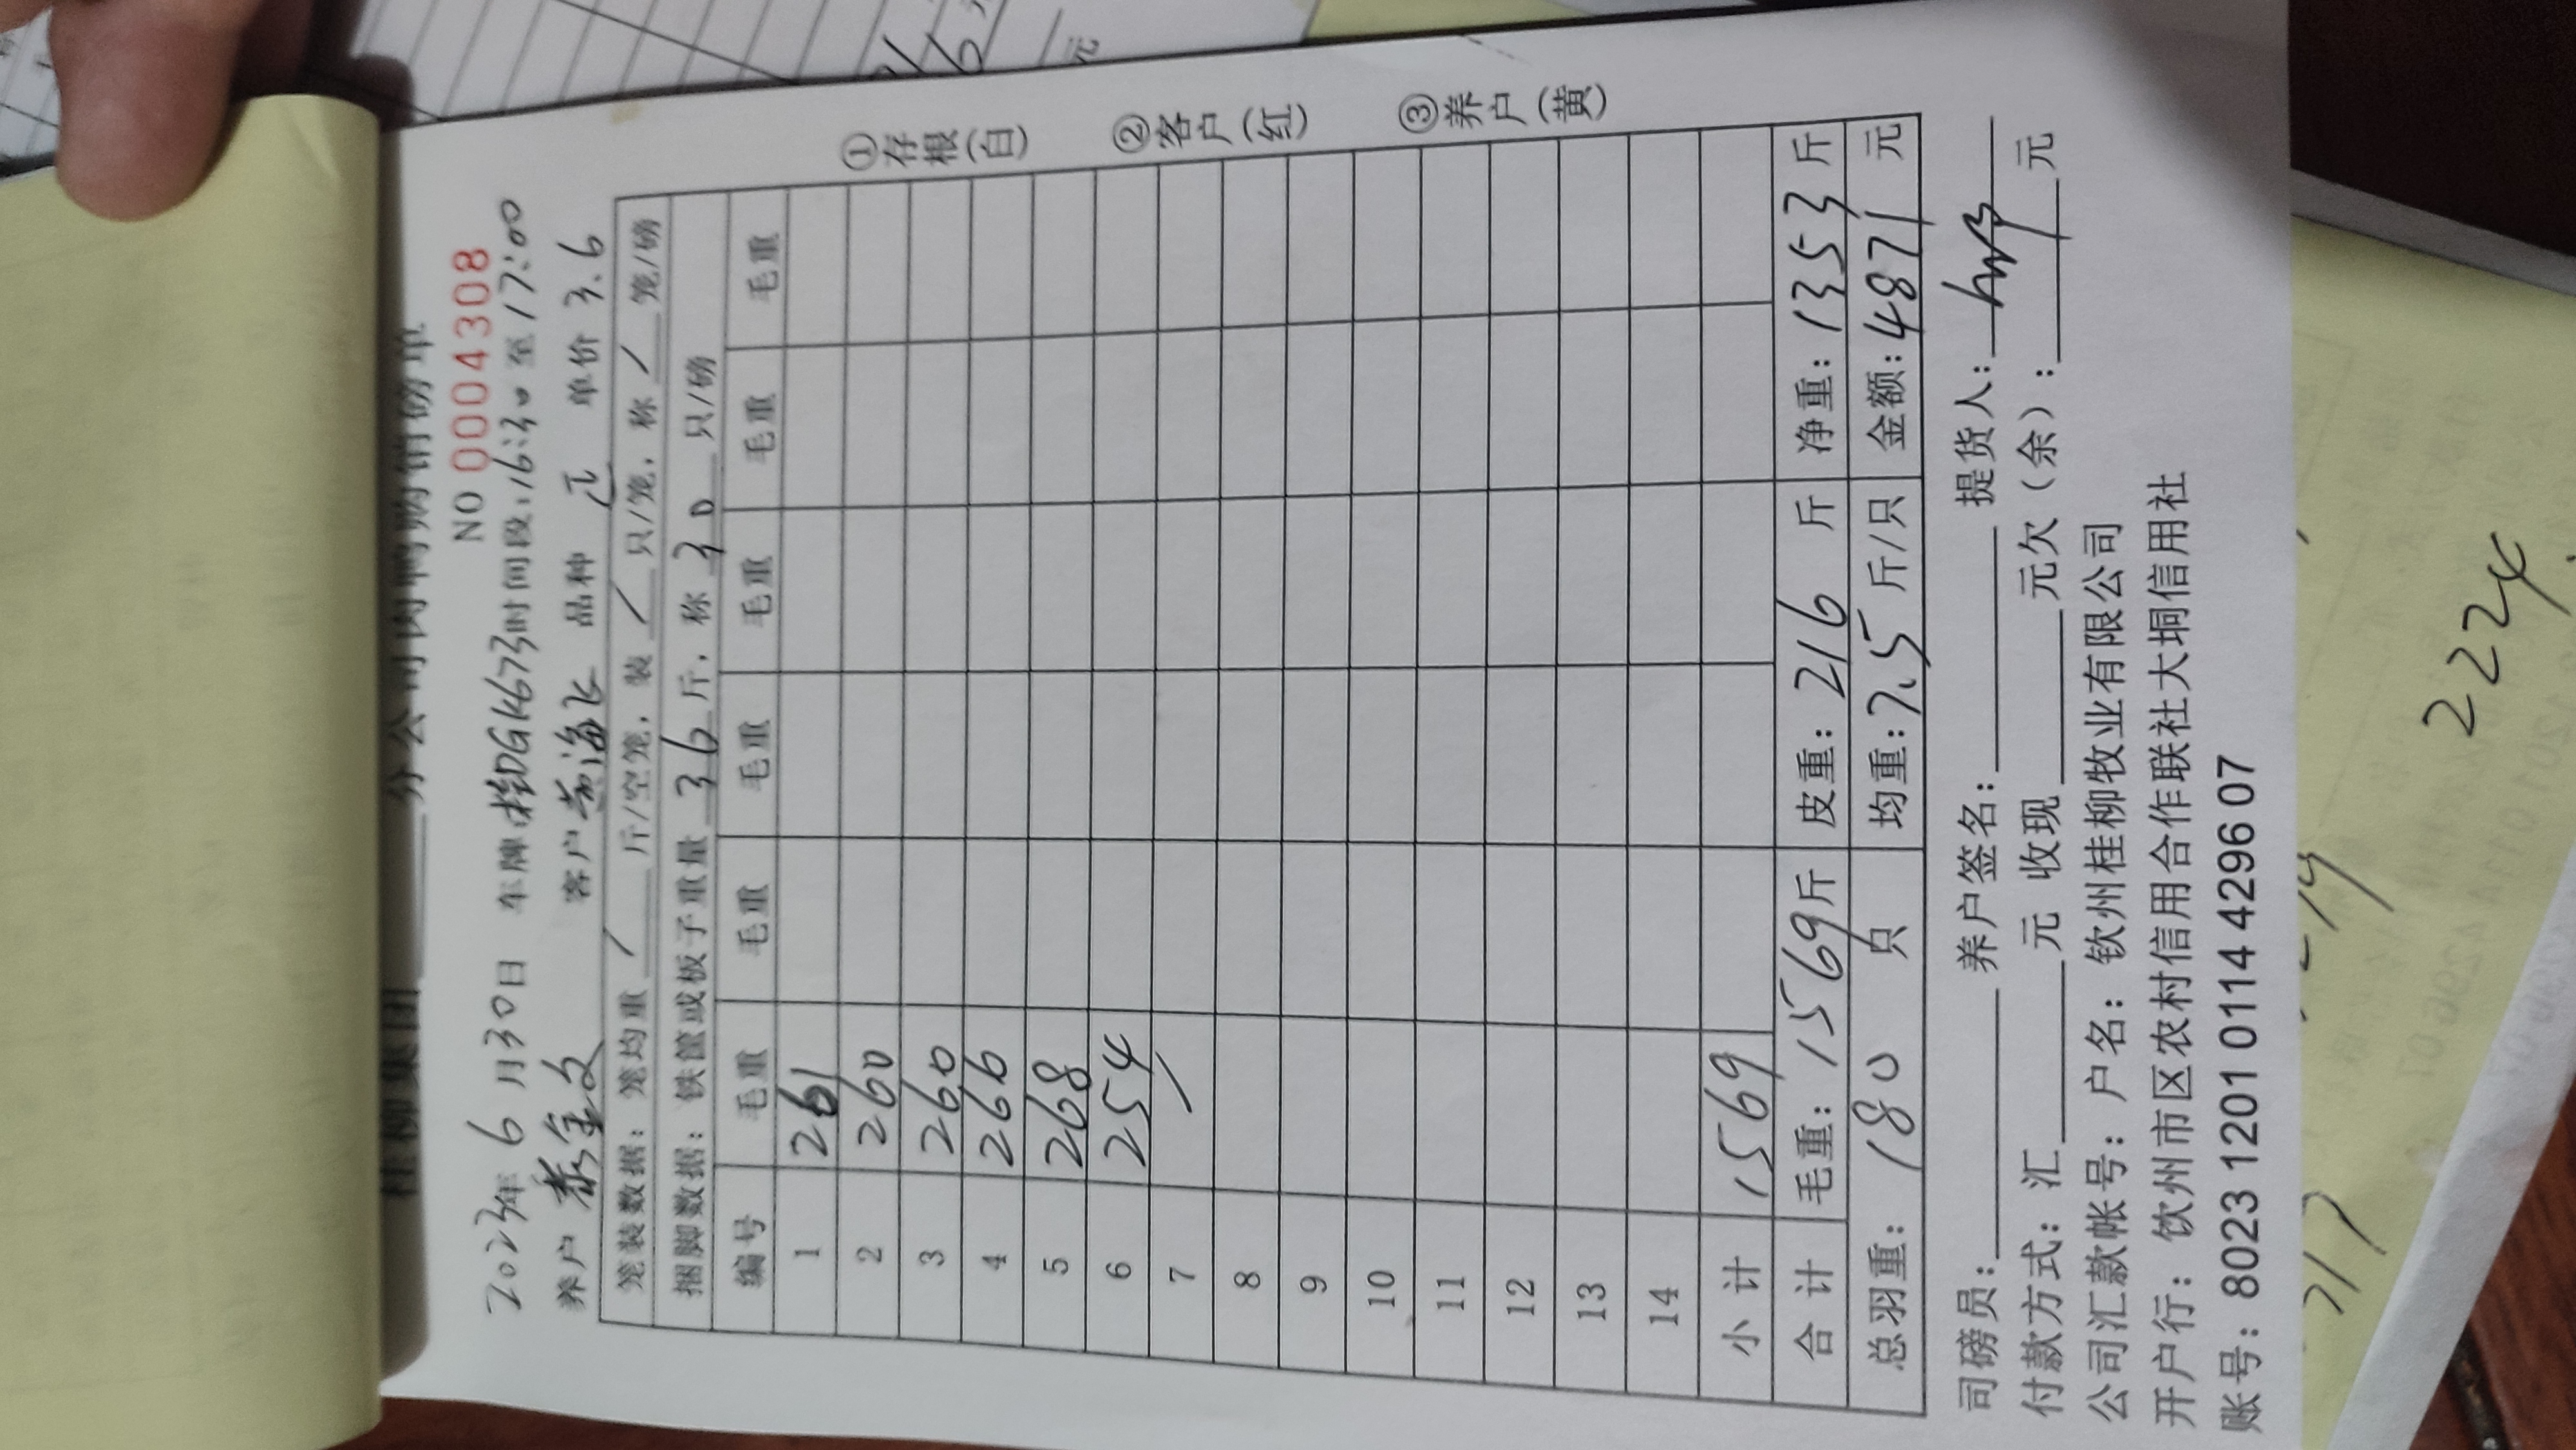 桂柳集团 分公司肉鸭购销磅单
NO 0004308
2023年 6 月30日 车牌:桂DGK673时间段:16:30至17:00
养户 客户 黄海飞 品种 正 单价 3.6
笼装数据：笼均重 / 斤/空笼，装 / 只/笼，称 / 笼/磅
捆脚数据：铁筐或板子重量 36 斤，称 30 只/磅
编号 毛重 毛重 毛重 毛重 毛重 毛重
1 261
2 260
3 260
4 266
5 268
6 254
7 /
8
9
10
11
12
13
14
小计 1569
合计 毛重：1569斤 皮重：216 斤 净重：1353斤
总羽重： 180 只 均重：7.5 斤/只 金额：4871 元
①存根(白) ②客户(红) ③养户(黄)
司磅员： 养户签名： 提货人：
付款方式：汇 元 收现 元欠（余）： 元
公司汇款帐号：户名：钦州桂柳牧业有限公司
开户行：钦州市区农村信用合作联社大垌信用社
账号：8023 1201 0114 4296 07
元
224